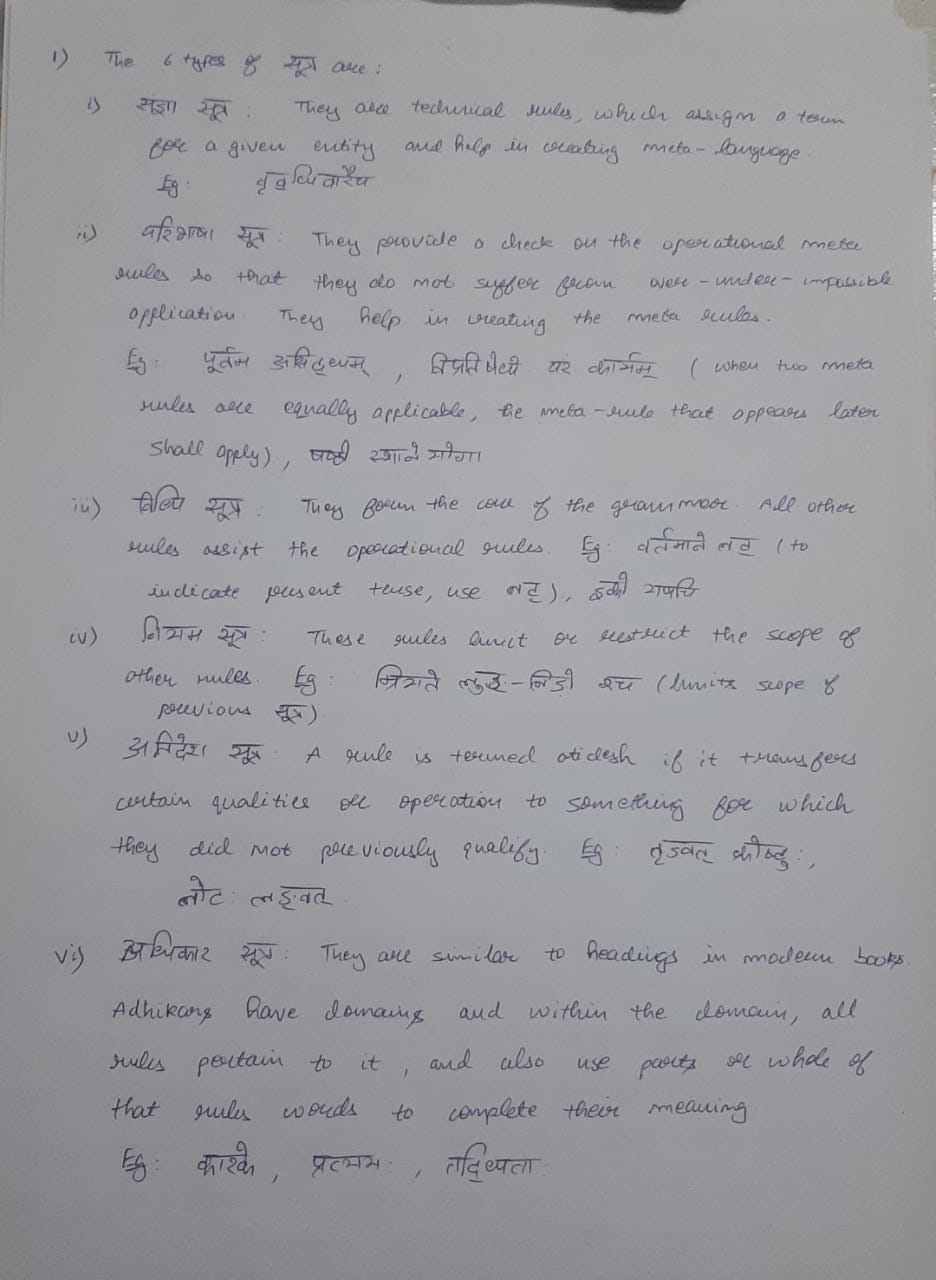 1) The 6 types of सूत्र are:
i) संज्ञा सूत्र : They are technical rules, which assign a term
for a given entity and help in creating meta-language.
Eg:
ii) परिभाषा सूत्र : They provide a check on the operational meta
rules so that they do not suffer from over-under-impossible
application. They help in creating the meta rules.
Eg: पूर्वत्र असिद्धम्, विप्रतिषेधे परं कार्यम् (when two meta
rules are equally applicable, the meta-rule that appears later
shall apply)., षष्ठी स्थाने योगा
iii) विधि सूत्र : They form the core of the grammar. All other
rules assist the operational rules. Eg: वर्तमाने लट् (to
indicate present tense, use लट्)., इको यणचि
iv) नियम सूत्र : These rules limit or restrict the scope of
other rules. Eg: म्रियते लुङ्-लिङो श्च (limits scope of
previous सूत्र)
v) अतिदेश सूत्र : A rule is termed atidesh if it transfers
certain qualities or operation to something for which
they did not previously qualify. Eg: तृज्वत् क्रोष्टुः,
लोटः लङ्वत्
vi) अधिकार सूत्र : They are similar to headings in modern books.
Adhikars have domains and within the domain, all
rules pertain to it, and also use parts or whole of
that rules words to complete their meaning.
Eg: कारके, प्रत्ययः, तद्धिता: